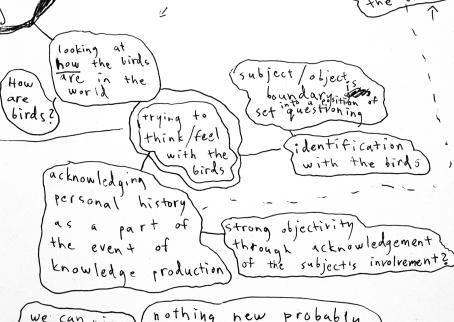 the
looking at
how the birds
are in the
world
How
are
birds?
subject/object
boundary is
into a position of
set questioning
trying to
think/feel
with the
birds
identification
with the birds
acknowledging
personal history
as a part of
the event of
knowledge production
strong objectivity
through acknowledgement
of the subject's involvement?
we can
nothing new probably